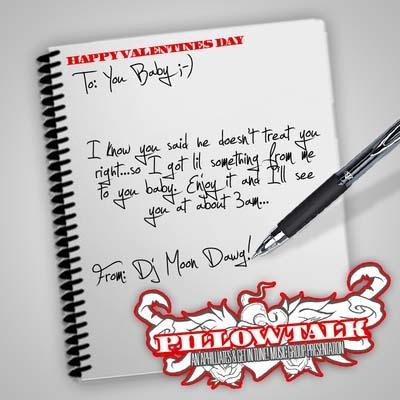 HAPPY VALENTINES DAY
To: You Baby ;-)
I know you said he doesn't treat you
right...so I got lil something from me
to you baby. Enjoy it and I'll see
you at about 3am...
From: Dj Moon Dawg!
PILLOWTALK
AN APHILLIATES & GET IN TUNE! MUSIC GROUP PRESENTATION